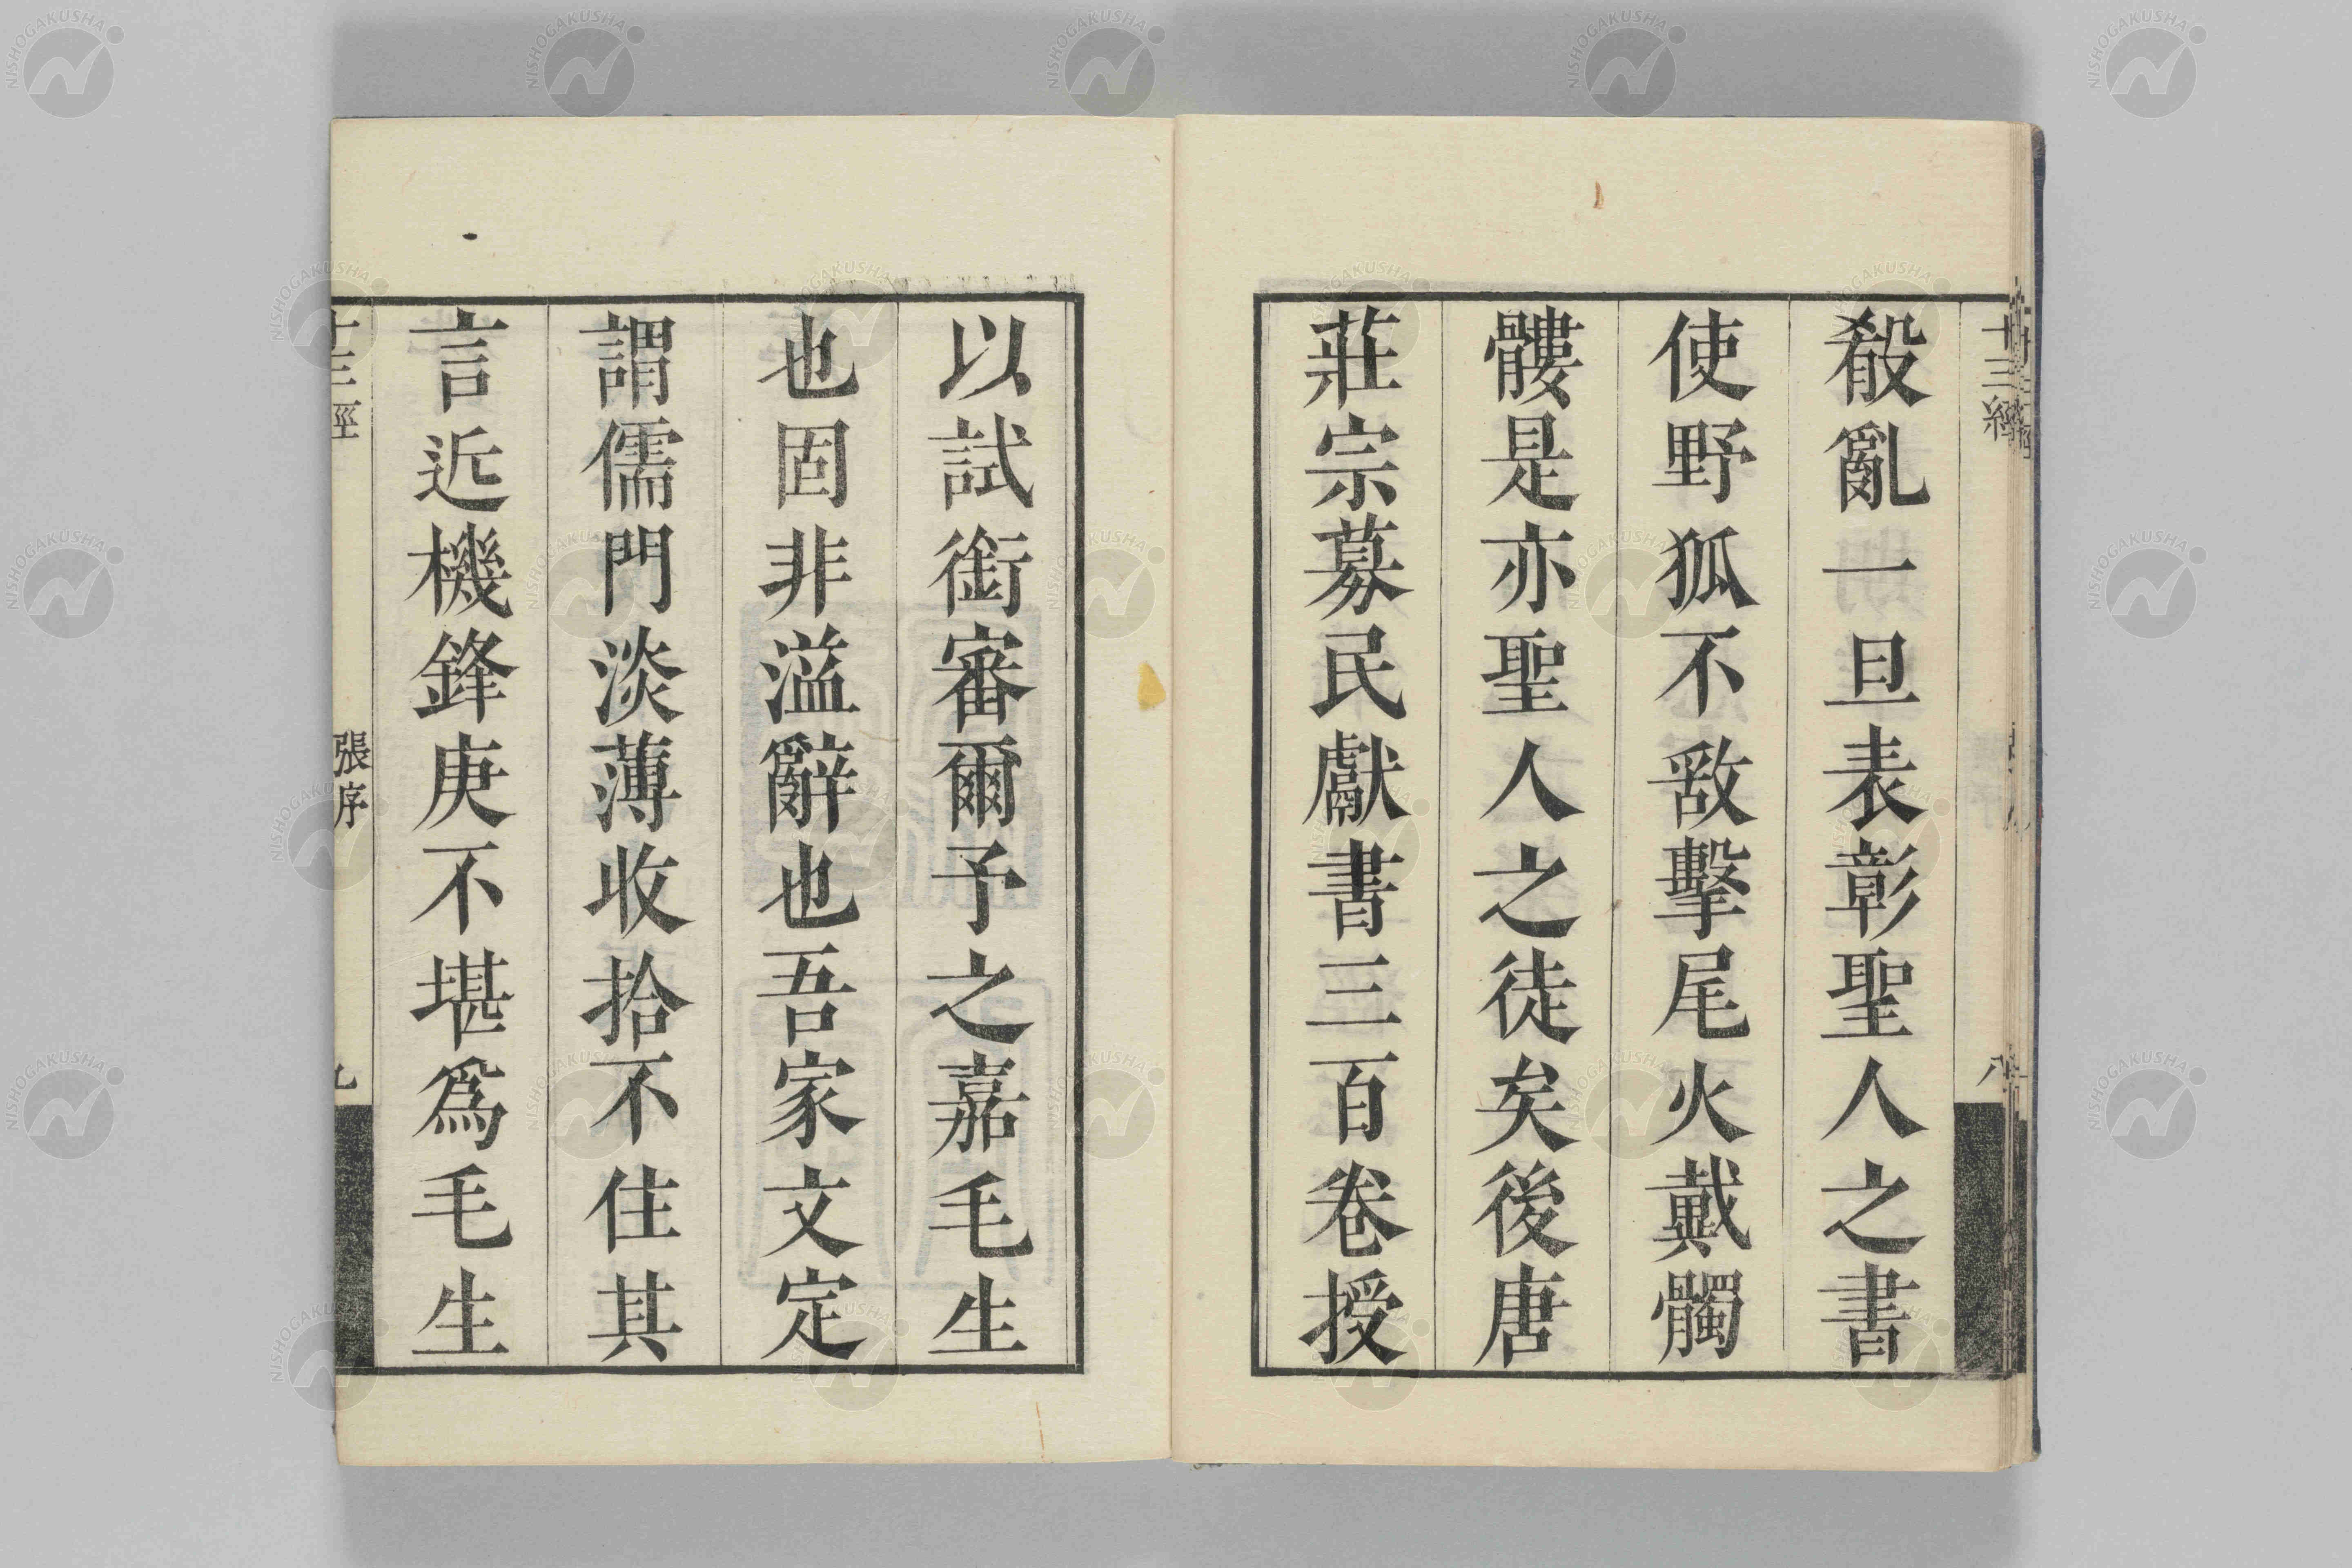 十三經
八
殽亂一旦表彰聖人之書
使野狐不敌擊尾火戴髑
髏是亦聖人之徒矣後唐
莊宗募民獻書三百卷授
以試銜審爾予之嘉毛生
也固非溢辭也吾家文定
謂儒門淡薄收拾不住其
言近機鋒庚不堪爲毛生
十三經
張序
九
NISHOGAKUSHA